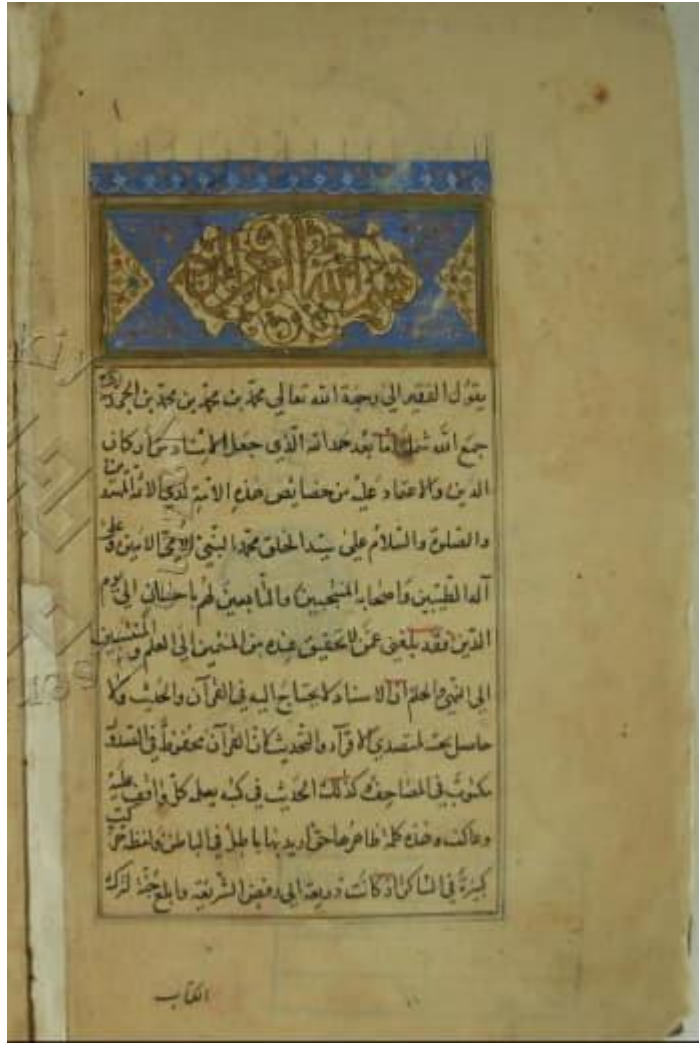 بسم الله الرحمن الرحيم
يقول الفقير الى رحمة الله تعالى محمد بن محمد بن محمد بن
جمع الله شمله اما بعد حمد الله الذي جعل الاسناد من اركان
الدين والاعتماد عليه من خصائص هذه الامة لدى الائمة
والصلوة والسلام على سيد الخلق محمد النبي الامي الامين وعلى
آله الطيبين واصحابه المنتجبين والتابعين لهم باحسان الى يوم
الدين فقد بلغني عمن لا تحقيق عنده من المنتمين الى العلم والمنتسبين
الى الفهم والحلم ان الاسناد لا يحتاج اليه في القرآن والحديث ولا
حاصل تحته لمتصدي الاقرآء والتحديث كان القرآن محفوظ في الصدور
مكتوب في المصاحف وكذلك الحديث في كتبه يعلمه كل واقف عليه
وعاكف وهذه كلمة ظاهرها حق اريد بها باطل في الباطن ولفظة
كبيرة في اذ كانت ذريعة الى رفض الشريعة وابلغ جنة لترك
الكتاب